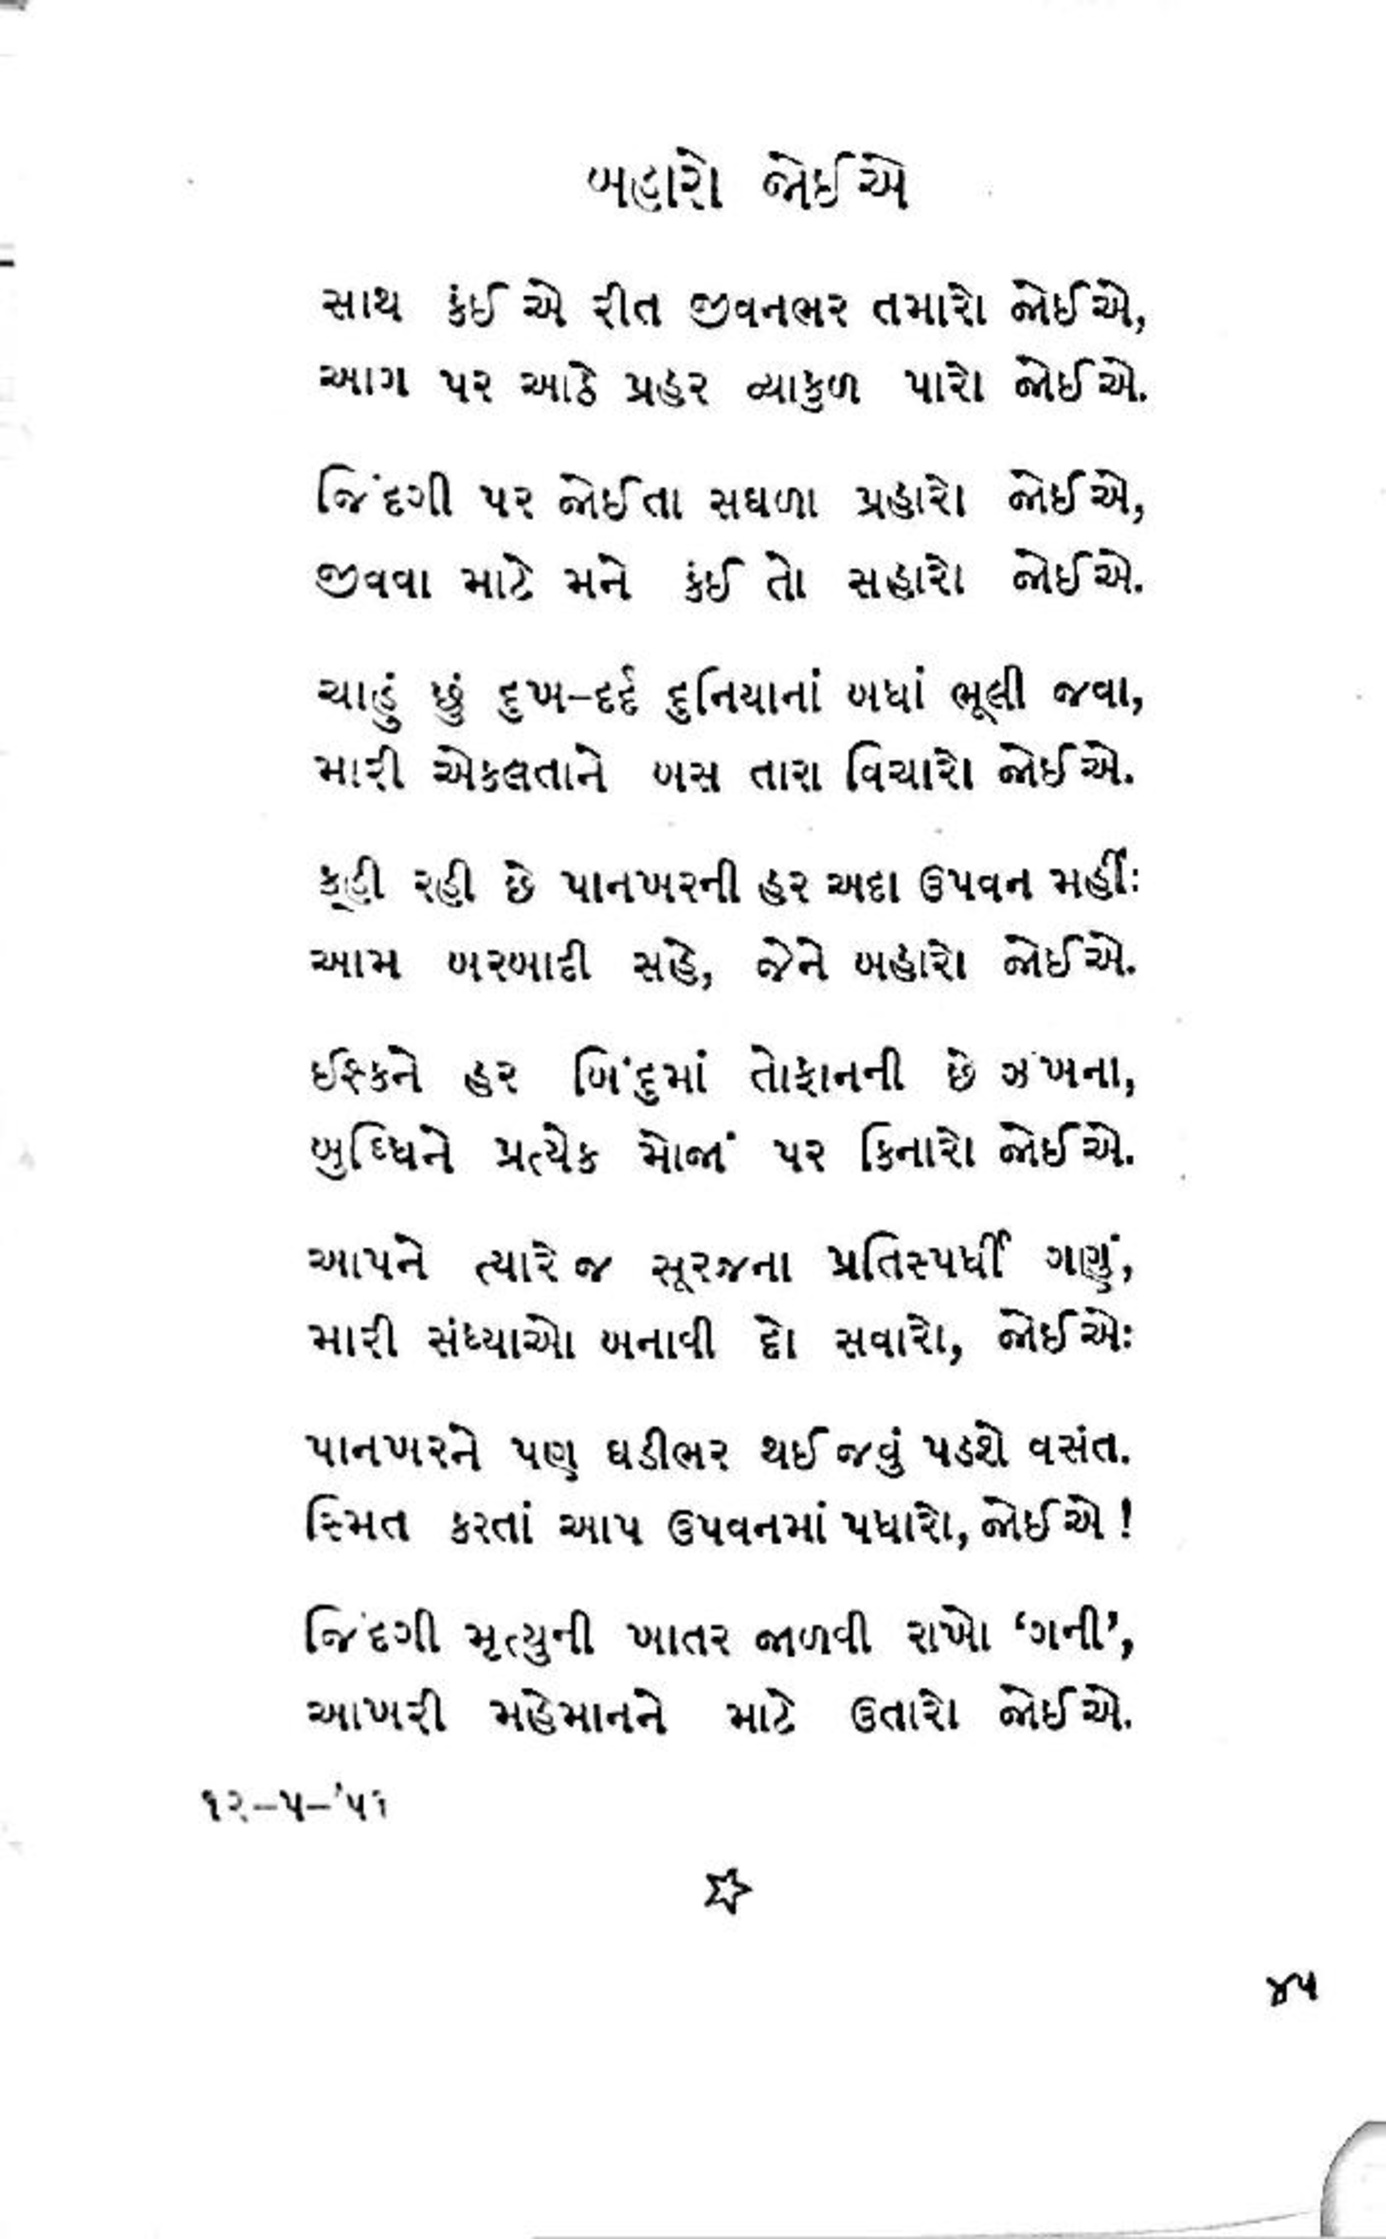 બહારો જોઈએ
સાથ કંઈ એ રીત જીવનભર તમારો જોઈએ,
આગ પર આઠે પ્રહર વ્યાકુળ પારો જોઈએ.
જિંદગી પર જોઈતા સઘળા પ્રહારો જોઈએ,
જીવવા માટે મને કંઈ તો સહારો જોઈએ.
ચાહું છું દુખ–દર્દ દુનિયાનાં બધાં ભૂલી જવા,
મારી એકલતાને બસ તારા વિચારો જોઈએ.
કૂટી રહી છે પાનખરની હર અદા ઉપવન મહીંઃ
આમ બરબાદી સહે, જેને બહારો જોઈએ.
ઈશ્કને હર બિંદુમાં તોફાનની છે ઝંખના,
બુધ્ધિને પ્રત્યેક મોજાં પર કિનારો જોઈએ.
આપને ત્યારે જ સૂરજના પ્રતિસ્પર્ધી ગણું,
મારી સંધ્યાઓ બનાવી દો સવારો, જોઈએઃ
પાનખરને પણ ઘડીભર થઈ જવું પડશે વસંત.
સ્મિત કરતાં આપ ઉપવનમાં પધારો, જોઈએ !
જિંદગી મૃત્યુની ખાતર જાળવી રાખો ‘ગની’,
આખરી મહેમાનને માટે ઉતારો જોઈએ.
૧૨–૫–’૫૧
૪૫